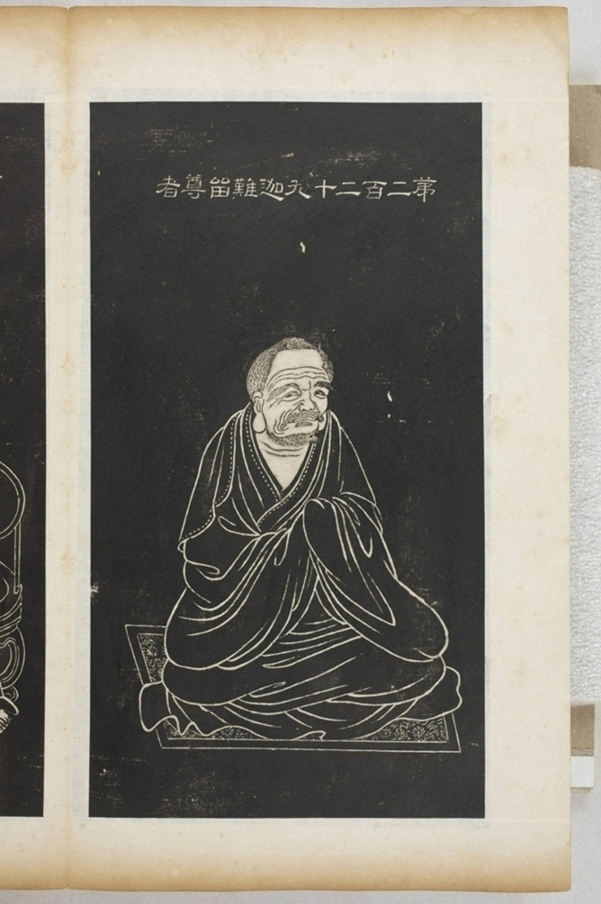 第二百二十九迦難留尊者